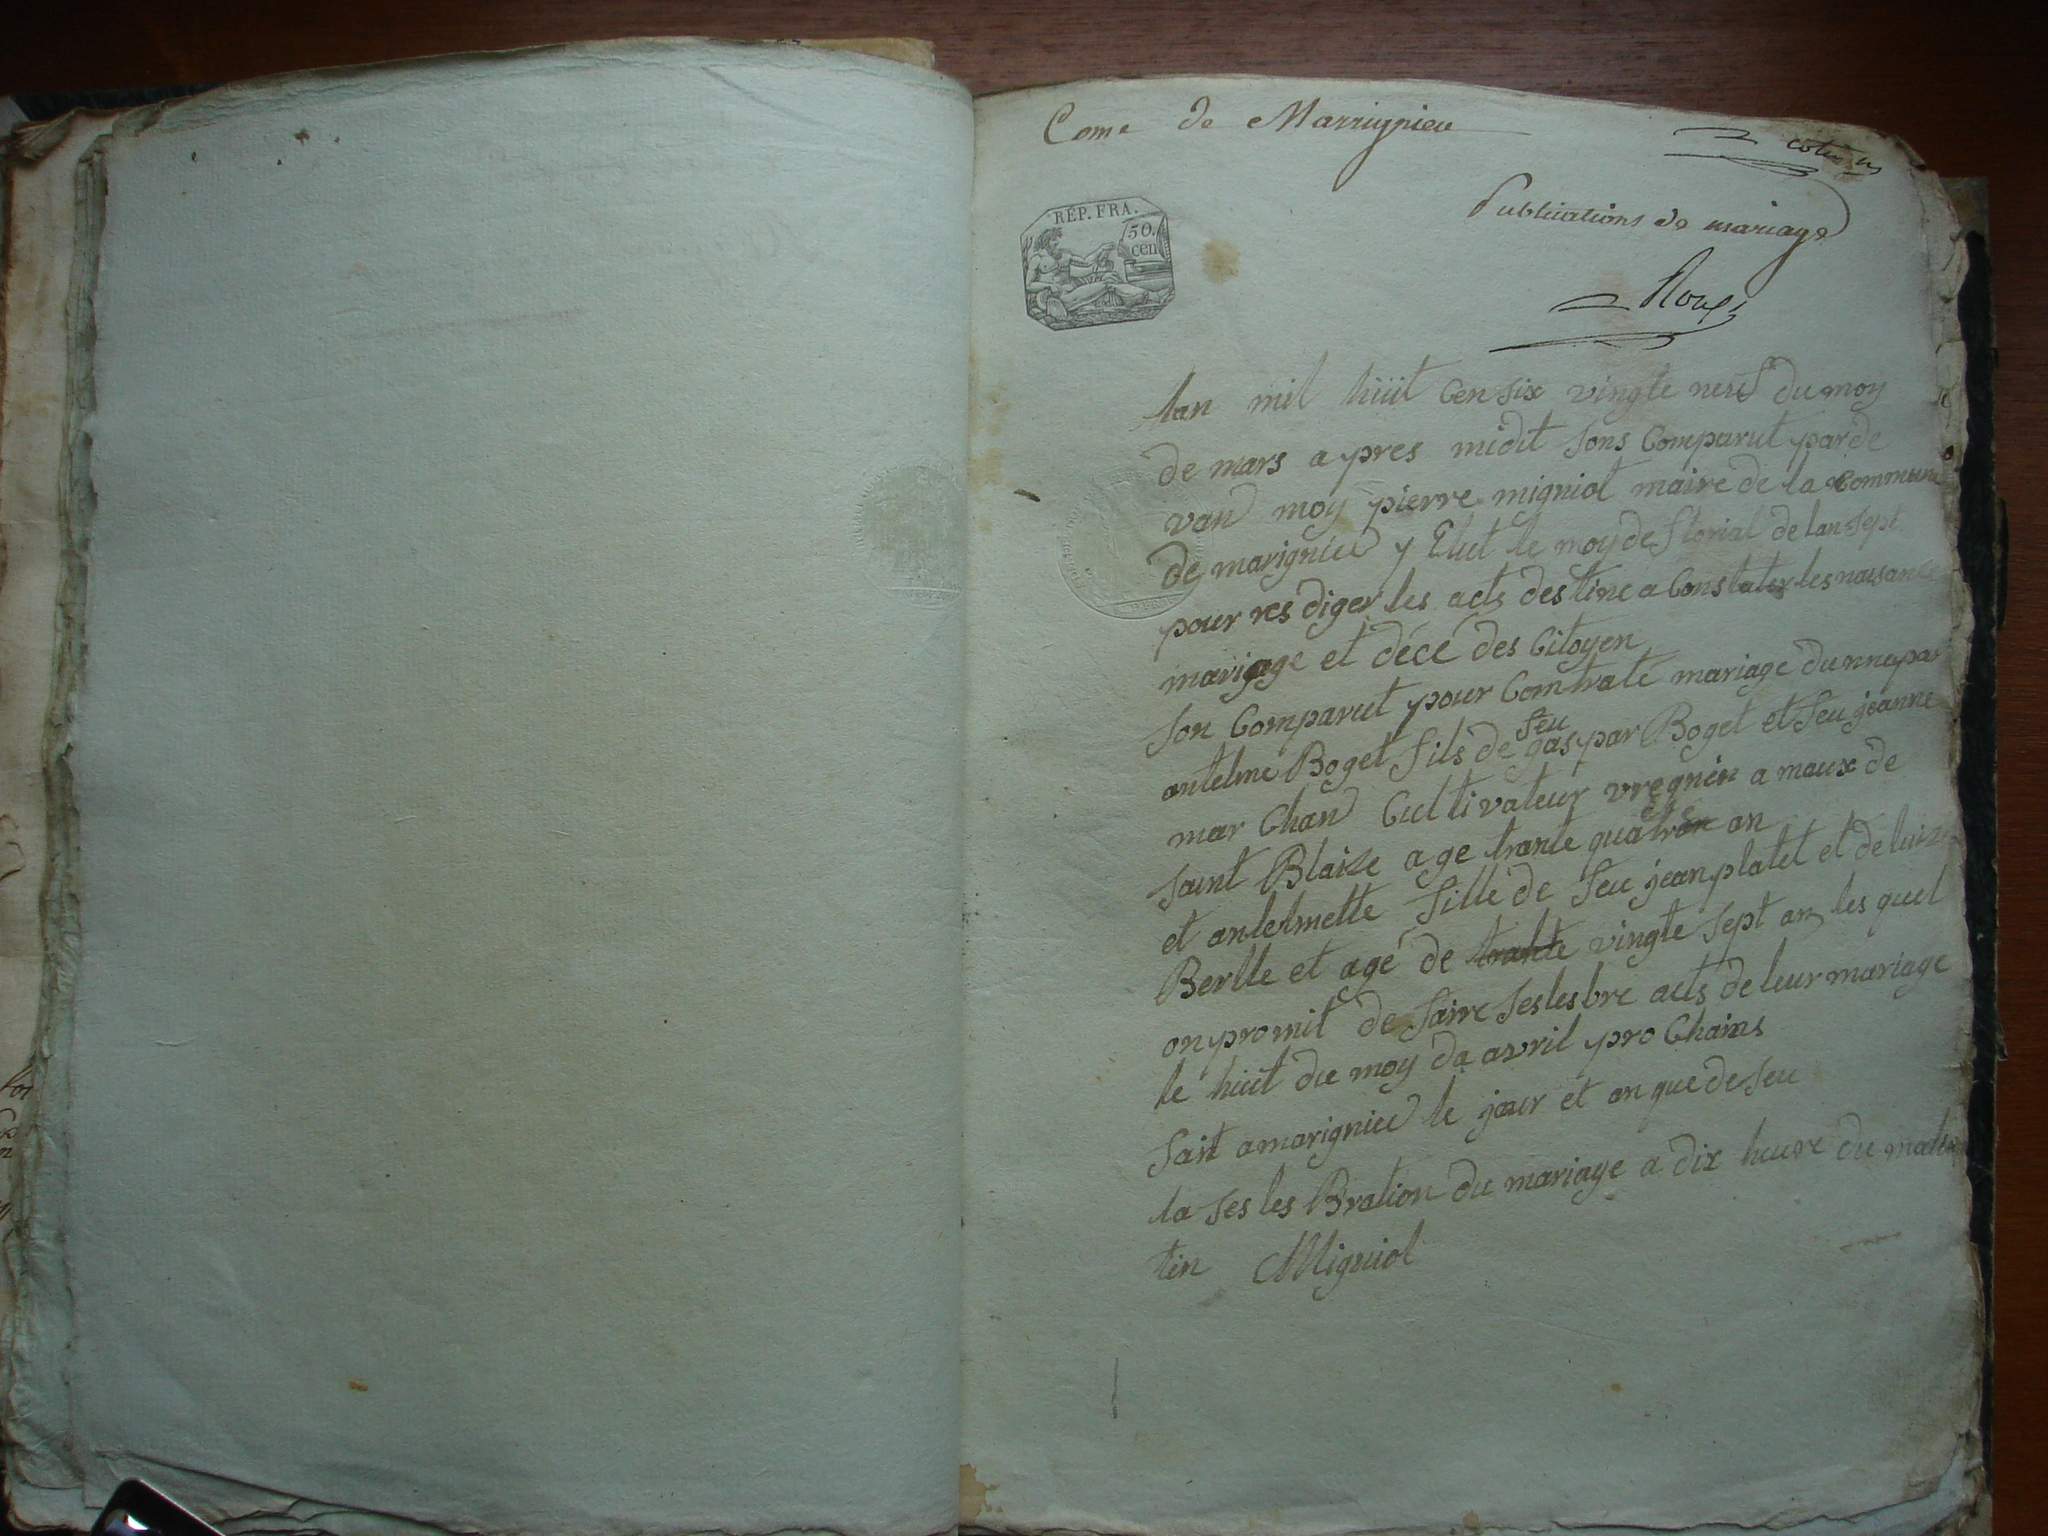 Come de Marrignieu
Publications de mariage
REP. FRA.
50.
cen
Roux
lan mil huit Cen Six vingte neuf du moy
de mars a pres midit Sons Comparut par de
van moy pierre migniot maire de la Commune
de marignieu y Elut le moy de florial de lan Sept
pour res diger les acts des tine a Constater les naisance
mariage et décé des Citoyen
Son Comparut pour Contraté mariage
antelme Boget fils de feu gaspar Boget et feu jeanne
mar Chan Cultivateur a maux de
Saint Blaise a ge trante quatre an
et antelmette fille de feu jean platet et de
Berlle et agé de trante vingte Sept an les quel
on promit de faire Ses les bre acts de leur mariage
le huit du moy da avril pro Chains
fait a marignieu le jour et an que de Seu
la Ses les Bration du mariage a dix heure du matin
tin Migniot